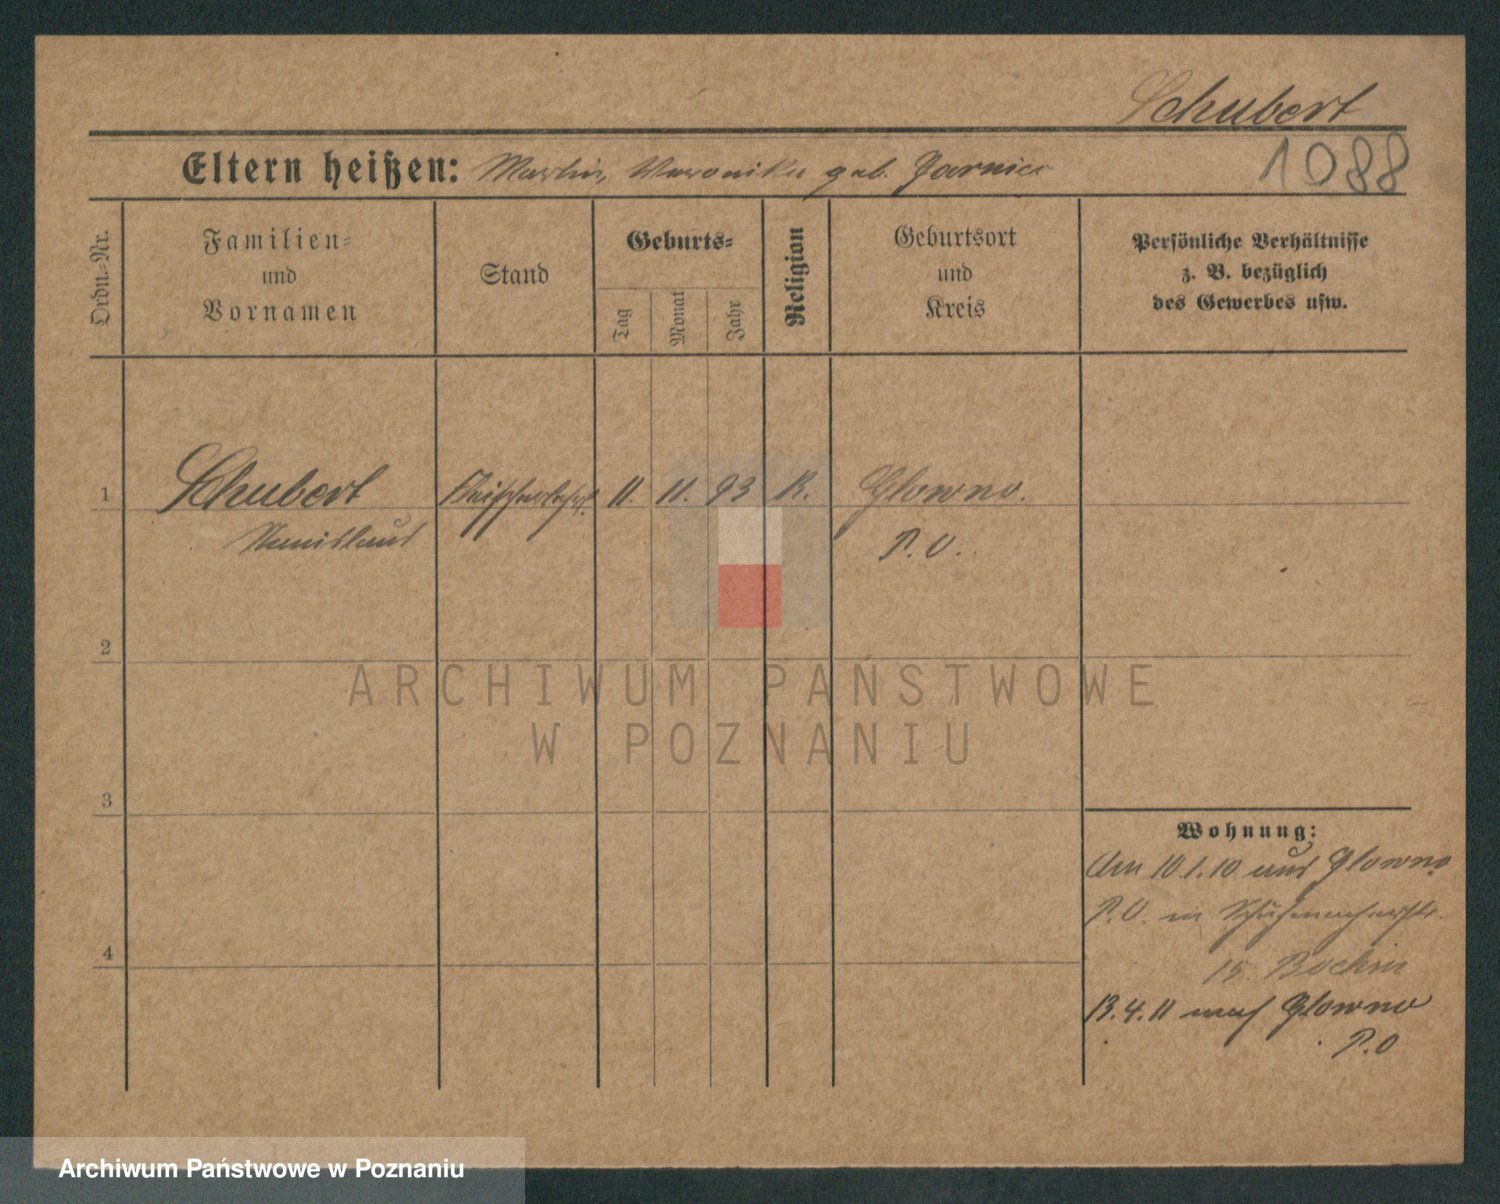 Schubert
Eltern heißen: Martin, Veronika geb. Jarnice
1088
Ordn.-Nr.
Familien-
und
Vornamen
Stand
Geburts-
Tag
Monat
Jahr
Religion
Geburtsort
und
Kreis
Persönliche Verhältnisse
z. B. bezüglich
des Gewerbes usw.
1 Schubert Fleischerlehrl. 11. 11. 93 K. Glowno.
Stanislaus P. O.
2
3
4
Wohnung:
Am 10.1.10 aus Glowno
P.O. in Schuhmacherstr.
15. Bochin
13.4.11 nach Glowno
P.O
ARCHIWUM PAŃSTWOWE
W POZNANIU
Archiwum Państwowe w Poznaniu